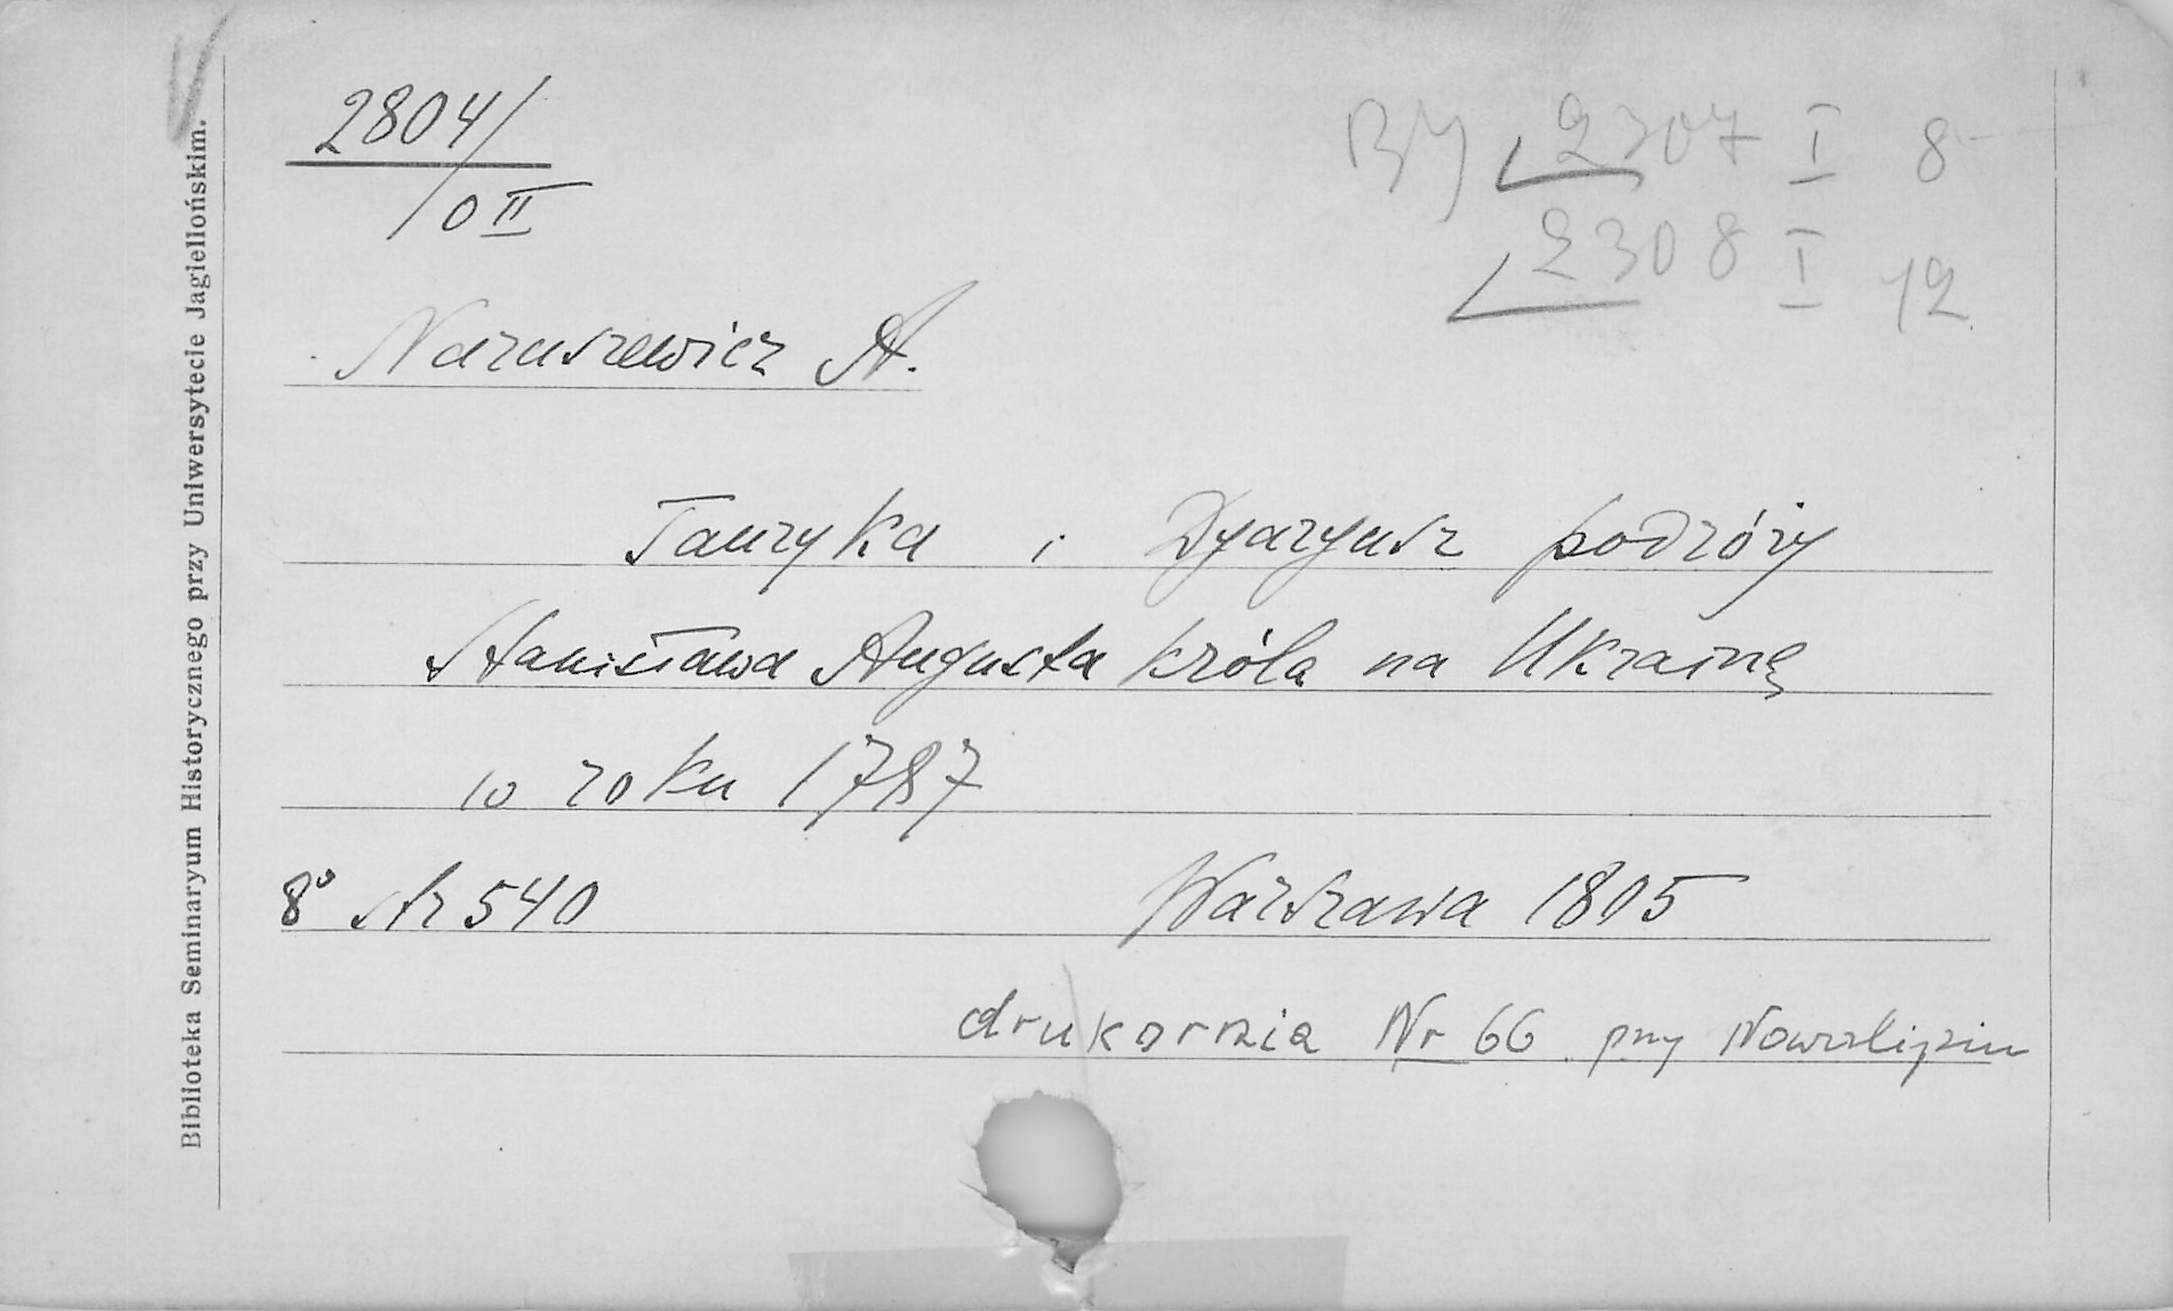 2804/
0 II
BJ 2307 I 8
2308 I 12
Naruszewicz A.
Tauryka i Dyaryusz podróży
Stanisława Augusta króla na Ukrainę
w roku 1787
8° str 540 Warszawa 1805
drukarnia Nr 66 przy Nowolipiu
Biblioteka Seminaryum Historycznego przy Uniwersytecie Jagiellońskim.